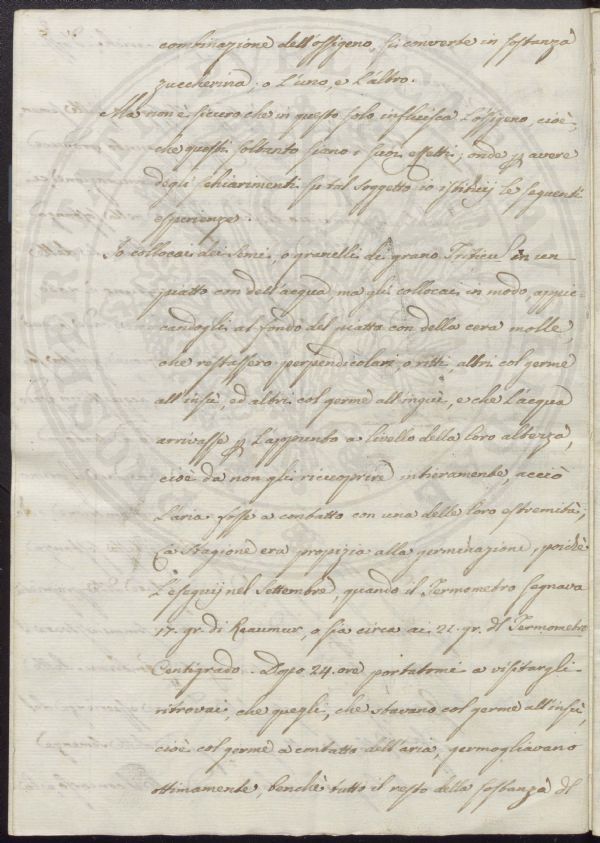 combinazione dell'ossigeno, si converte in sostanza
zuccherina, o l'uno, e l'altro.
Ma non è sicuro che in questo solo influisca l'ossigeno, cioè,
che questi soltanto siano i suoi effetti; onde p avere
degli schiarimenti su tal soggetto io istituij le seguenti
esperienze.
Io collocai dei semi, o granelli di grano Triticum in un
piatto con dell'acqua, ma gli collocai in modo, appic-
candogli al fondo del piatto con della cera molle,
che restassero perpendicolari, o ritti, altri col germe
all'insù, ed altri col germe all'ingiù, e che l'acqua
arrivasse p l'appunto a livello della loro altezza,
cioè da non gli ricuoprire intieramente, acciò
l'aria fosse a contatto con una delle loro estremità;
La Stagione era propizia alla germinazione, poichè
l'eseguij nel Settembre, quando il Termometro segnava
17. gr. di Reaumur, o sia circa ai 21. gr. dl Termometro
Centigrado. Dopo 24. ore portatomi a visitargli
ritrovai, che quegli, che stavano col germe all'insù,
cioè col germe a contatto dell'aria, germogliavano
ottimamente, benchè tutto il resto della sostanza dl